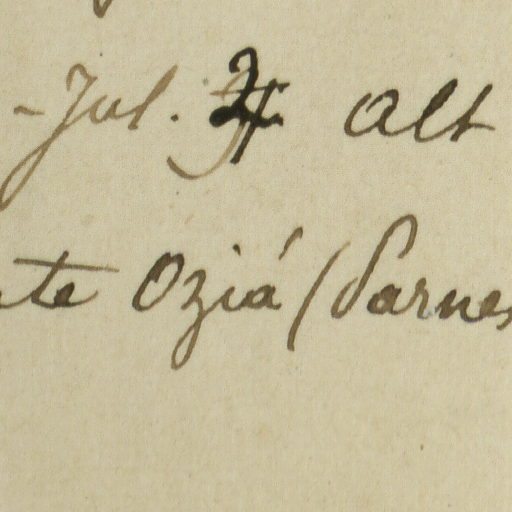 -Jul. 24 Alt
te Oziá (Parnes